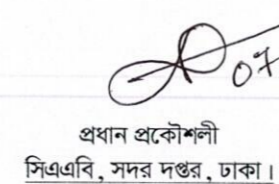 07
প্রধান প্রকৌশলী
সিএএবি, সদর দপ্তর, ঢাকা।